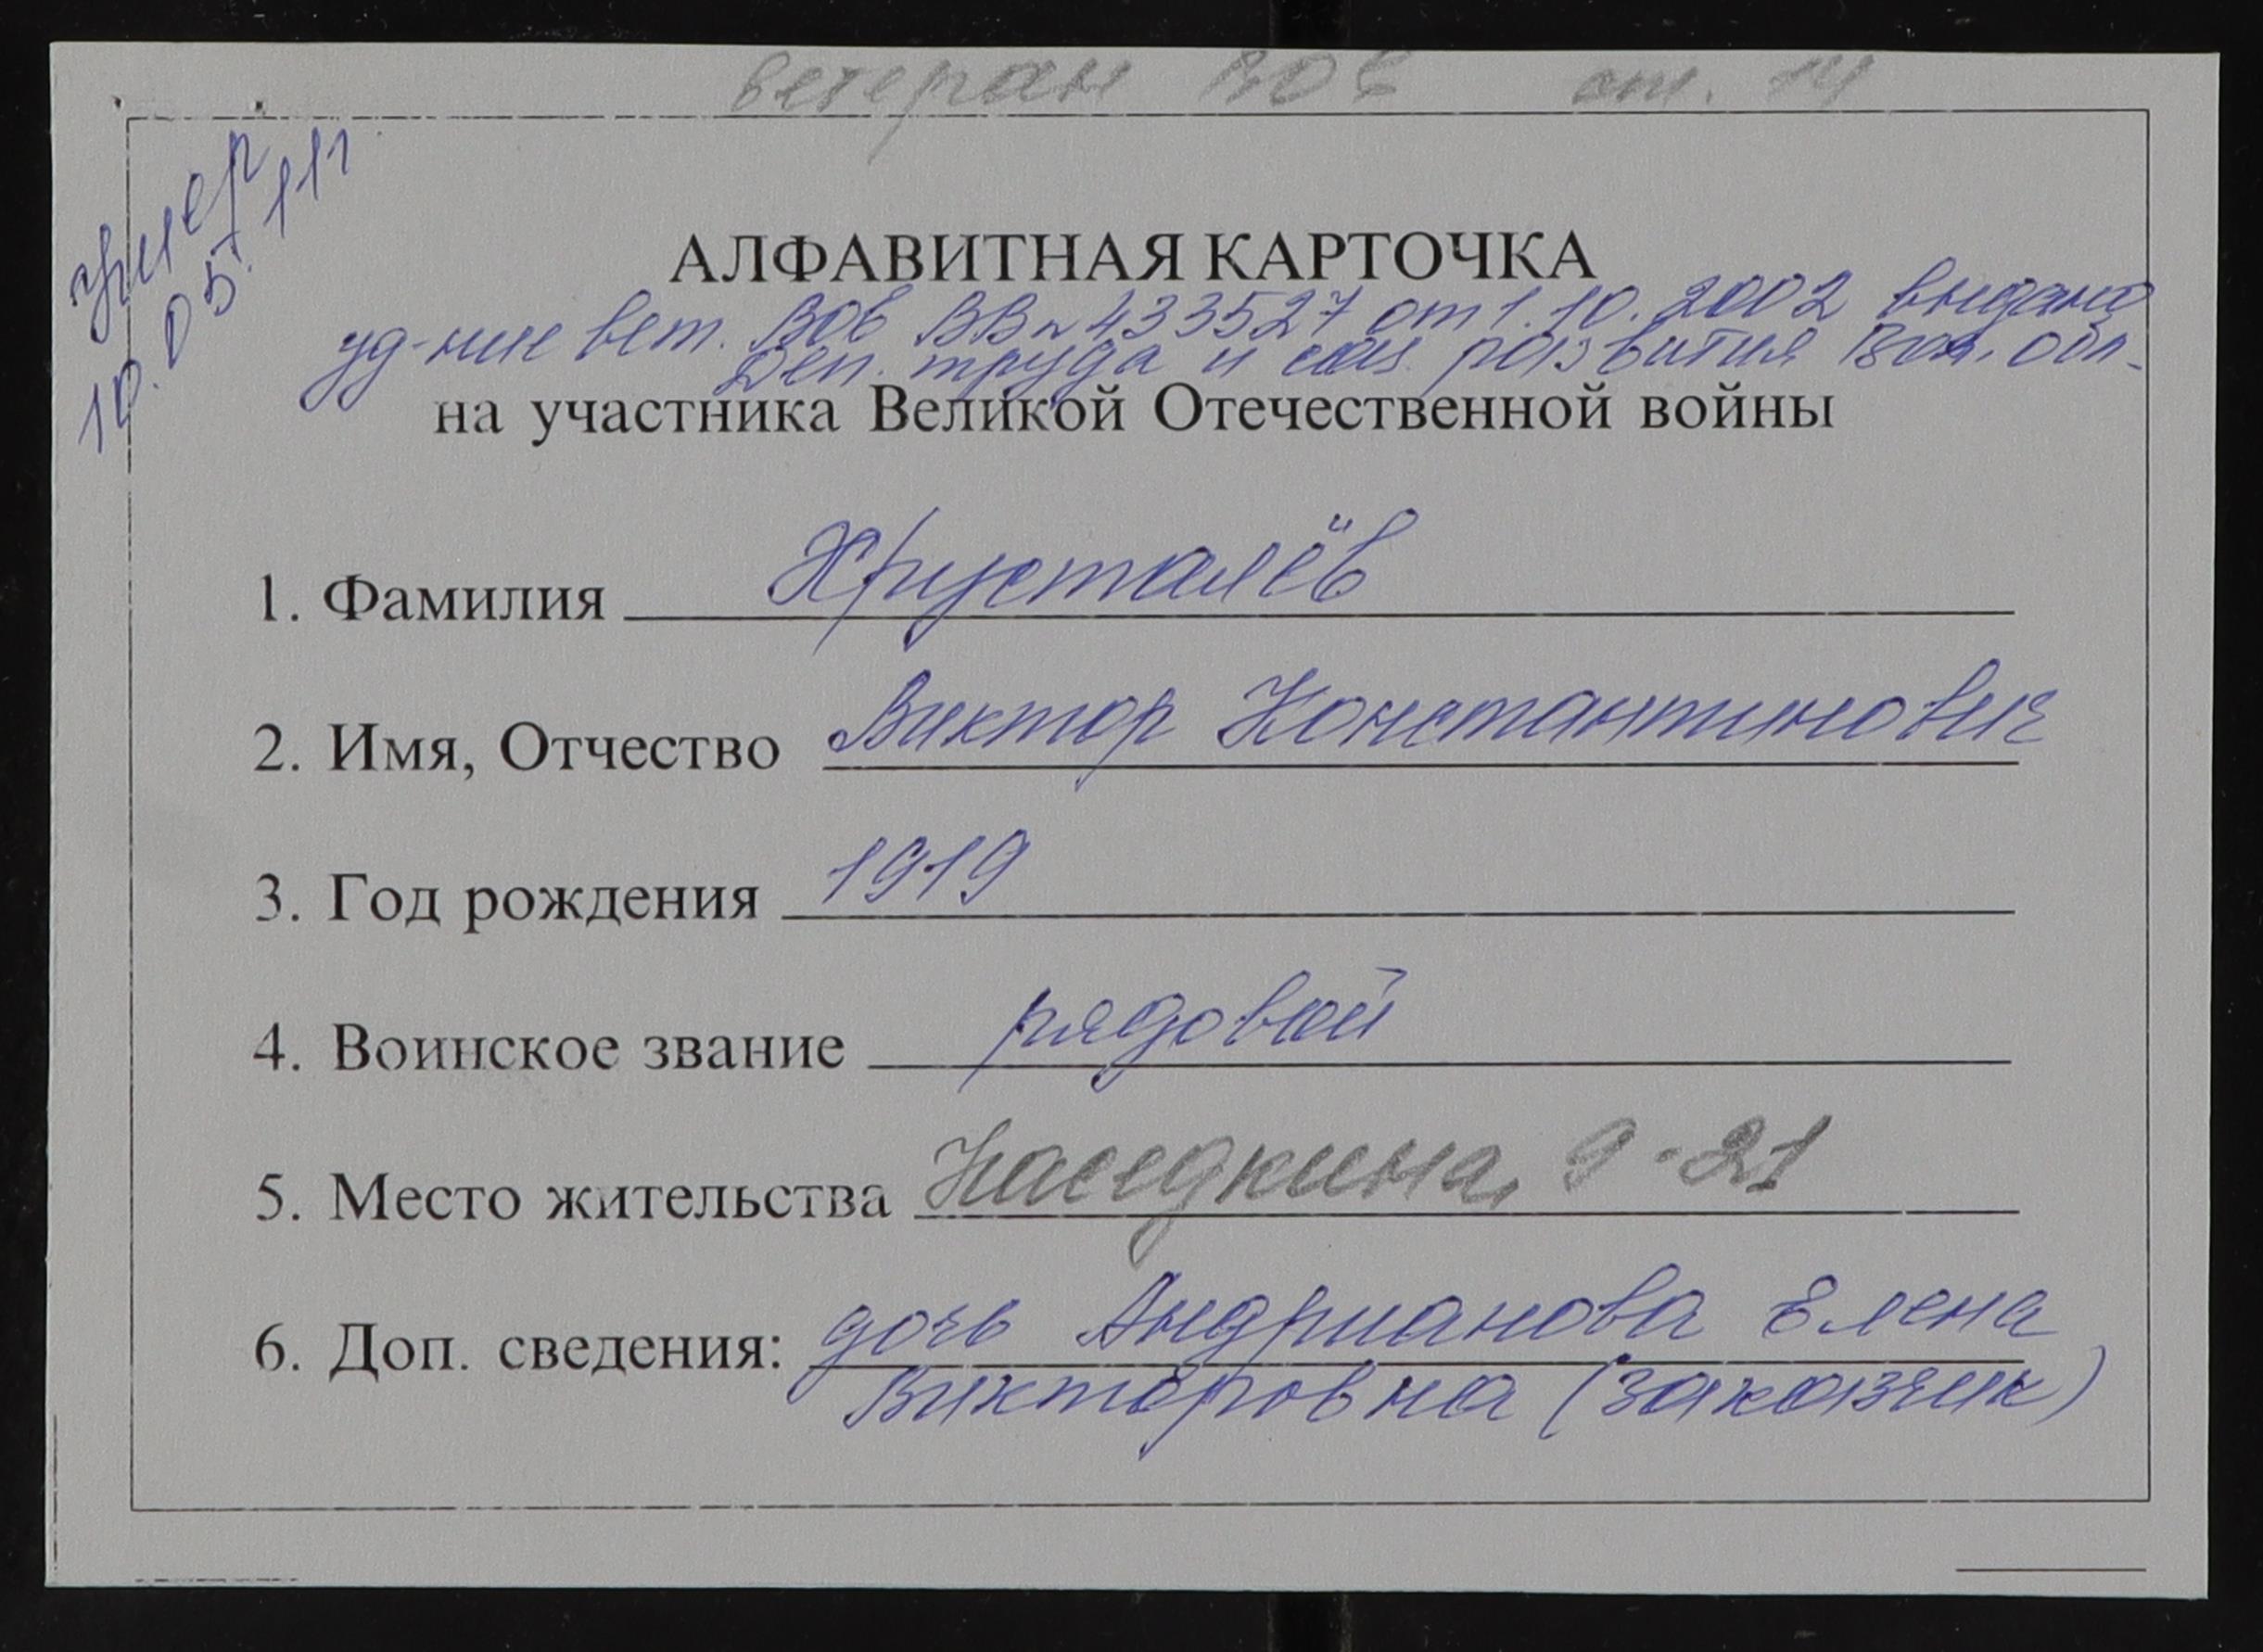 ветеран ВОв ст. 14
умер
10.05.11г
АЛФАВИТНАЯ КАРТОЧКА
уд-ние вет. ВОв ВВ № 433527 от 1.10.2002 выдано
Деп. труда и соц. развития Вол. обл.
на участника Великой Отечественной войны
1. Фамилия Хрусталёв
2. Имя, Отчество Виктор Константинович
3. Год рождения 1919
4. Воинское звание рядовой
5. Место жительства Наседкина, 9-21
6. Доп. сведения: дочь Андрианова Елена
Викторовна (заказчик)